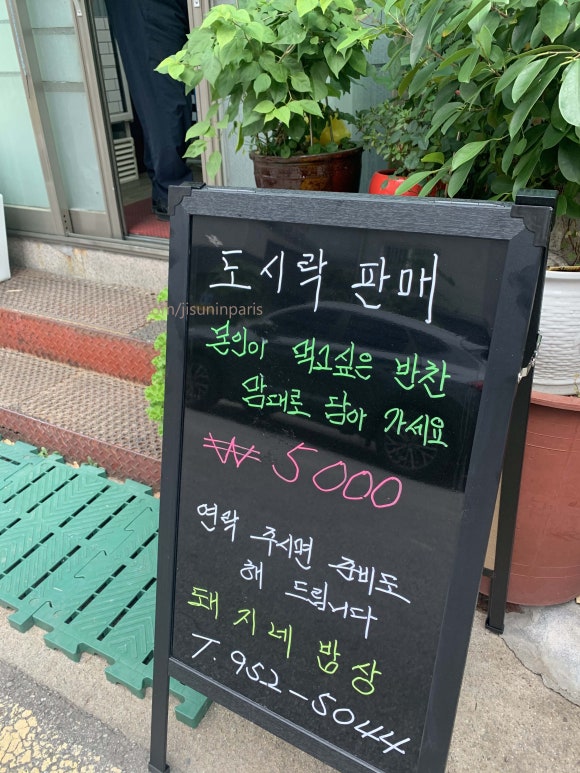 도시락 판매
/jisuninparis
본인이 먹고싶은 반찬
맘대로 담아 가세요
₩ 5000
연락 주시면 준비도
해 드립니다
돼지네 밥상
T. 952-5044